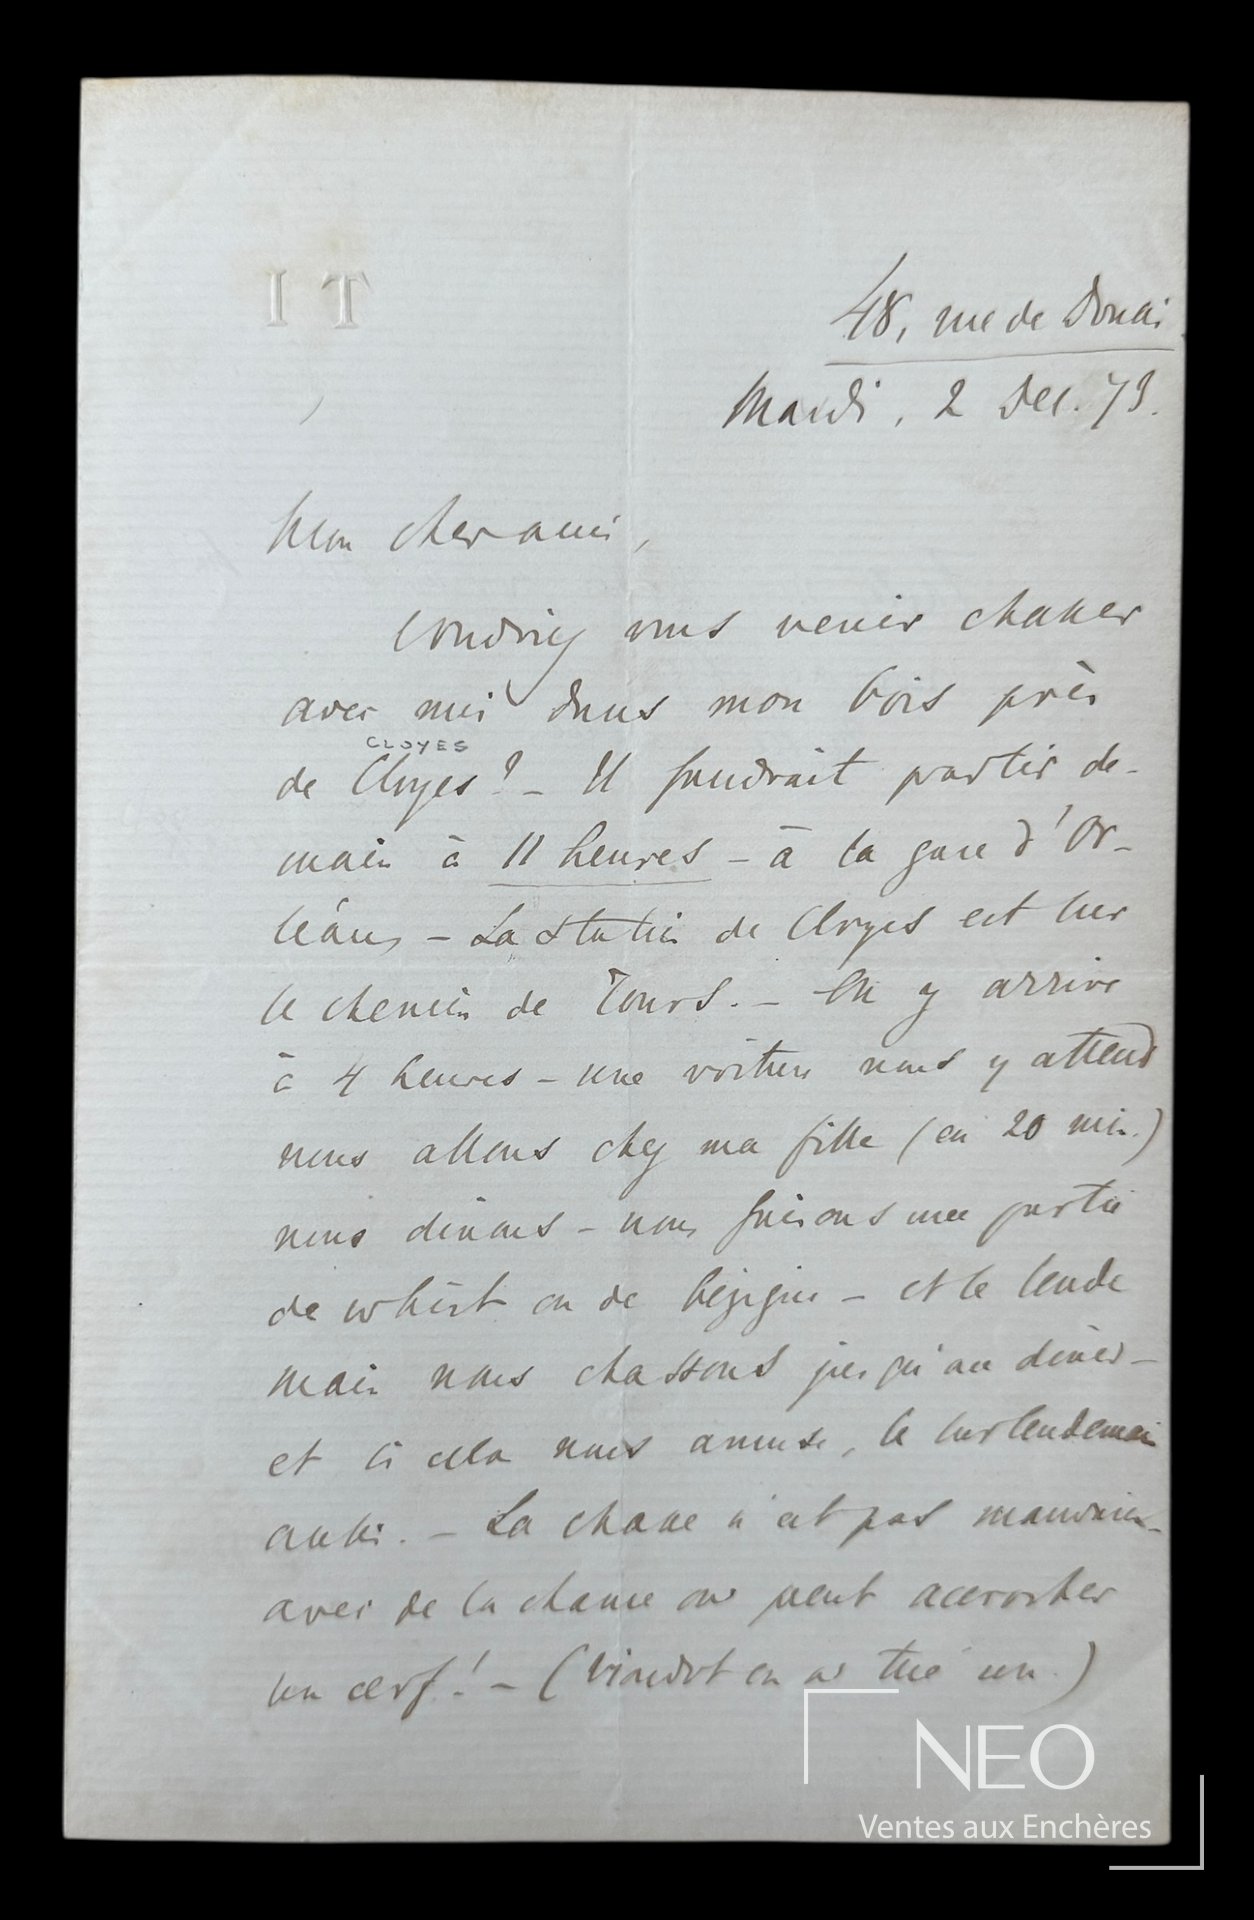 I T
48, rue de Douai
Mardi, 2 Déc. 73.
Mon cher ami,
Voudriez vous venir chasser
avec moi dans mon bois près
CLOYES
de Cloyes? – Il faudrait partir de-
main à 11 heures – à la gare d'Or-
léans – La station de Cloyes est sur
le chemin de Tours. – On y arrive
à 4 heures – une voiture nous y attend
nous allons chez ma fille (en 20 min.)
nous dinons – nous faisons une partie
de whist ou de bézigue – et le lende
main nous chassons jusqu'au diner –
et si cela nous amuse, le surlendemain
aussi. – La chasse n'est pas mauvaise –
avec de la chance on peut accrocher
un cerf! – (Viardot en a tué un.)
NEO
Ventes aux Enchères